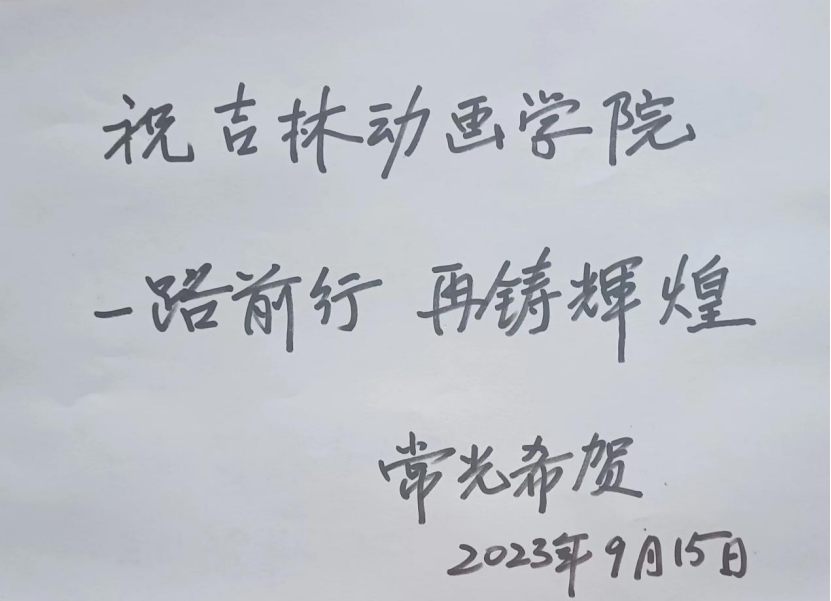 祝吉林动画学院
一路前行 再铸輝煌
常光希贺
2023年9月15日